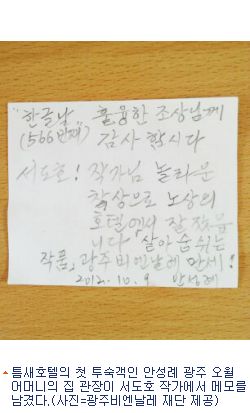 "한글날" 훌륭한 조상님께
(566번째) 감사 합시다
서도호! 작가님 놀라운
착상으로 노상의
호텔에서 잘 잤습
니다 살아 숨쉬는
작품, 광주비엔날레 만세!
2012. 10. 9 안성례
틈새호텔의 첫 투숙객인 안성례 광주 오월
어머니의 집 관장이 서도호 작가에서 메모를
남겼다.(사진=광주비엔날레 재단 제공)